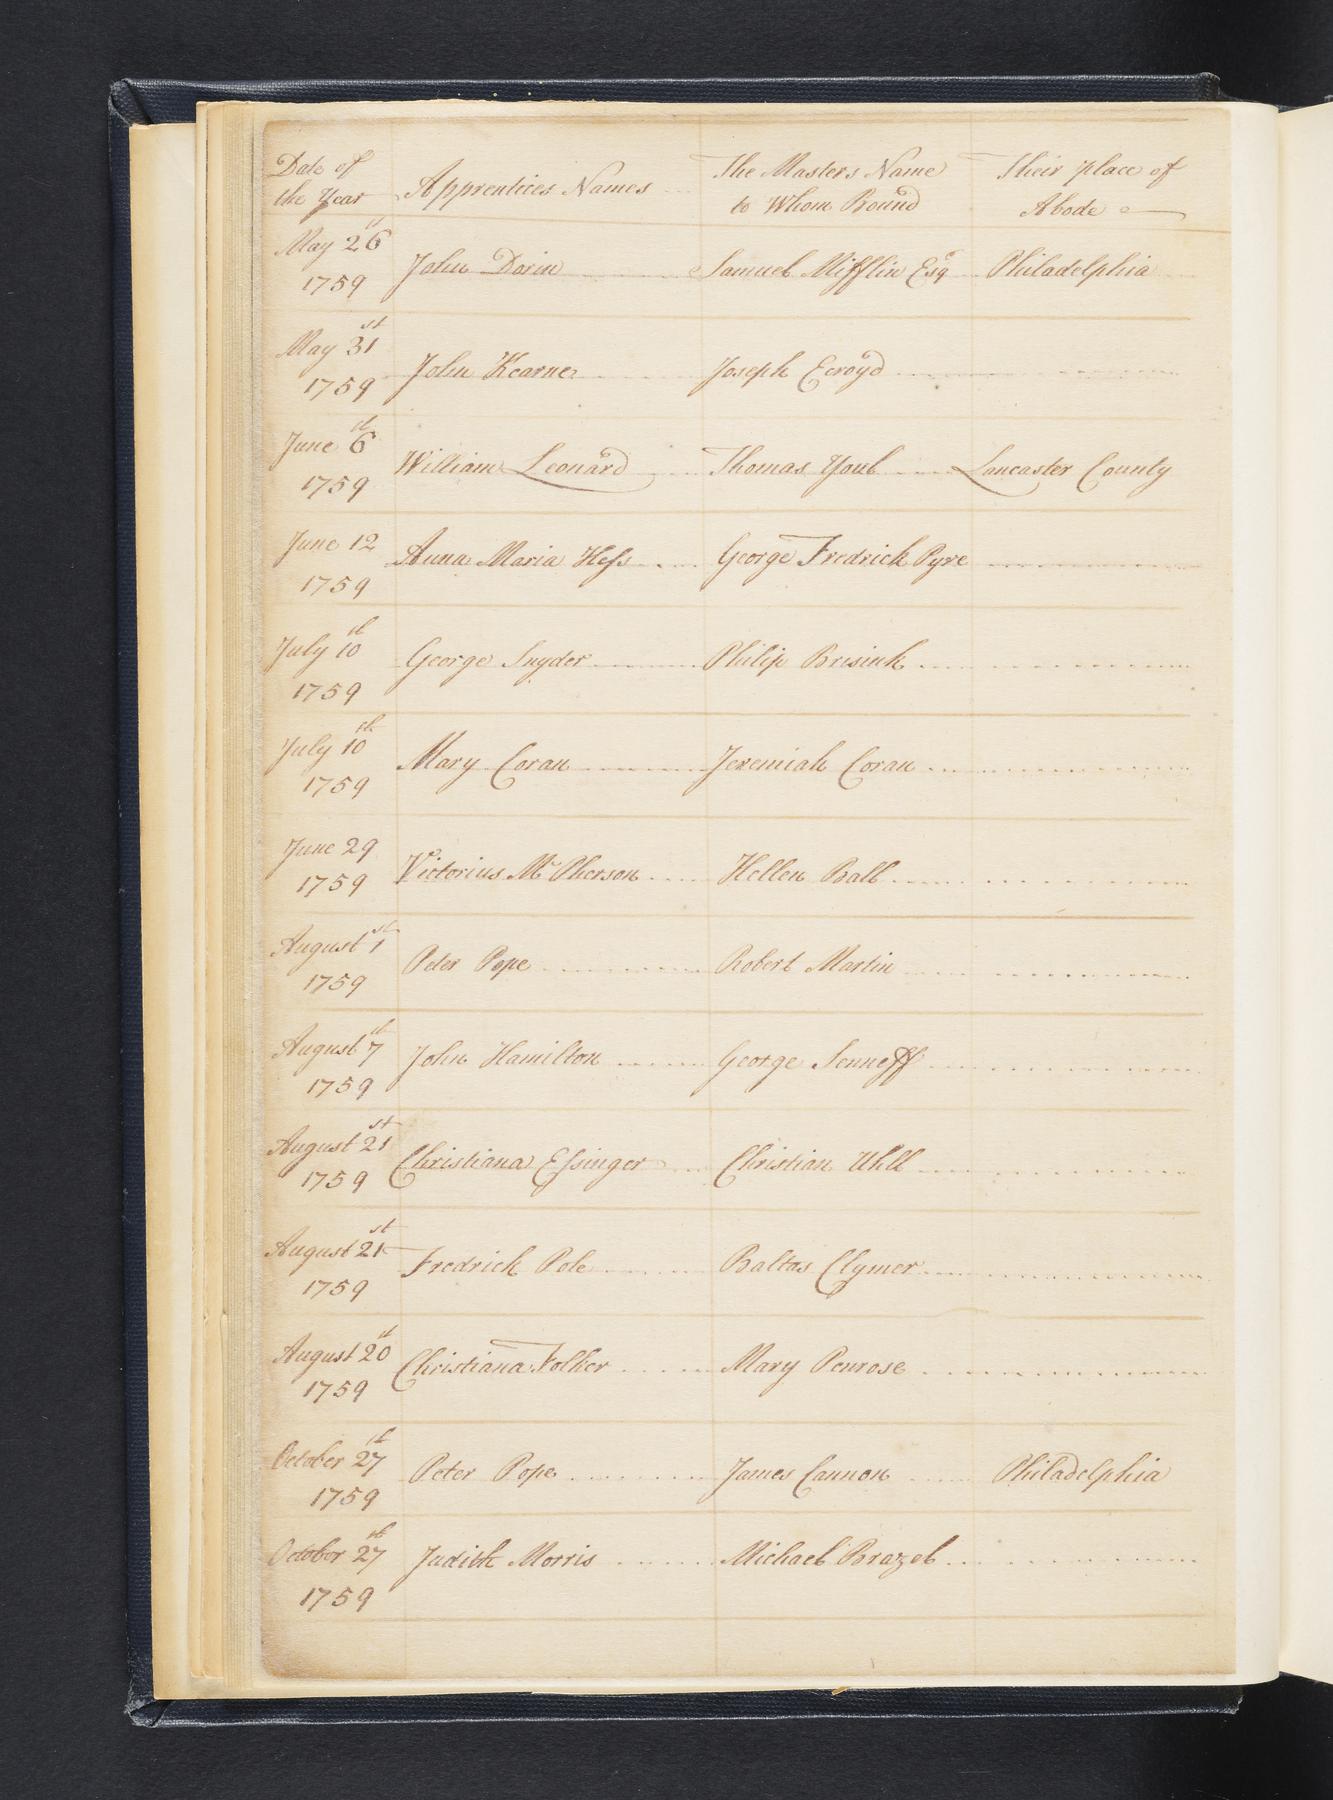 Date of the Year Apprentices Names The Masters Name to Whom Bound Their place of Abode
May 26th 1759 John Dorin Samuel Mifflin Esqr Philadelphia
May 31st 1759 John Kearne Joseph Ecroyd
June 6th 1759 William Leonard Thomas Youl Lancaster County
June 12 1759 Anna Maria Hess George Fredrick Pyre
July 10th 1759 George Snyder Philip Brisink
July 10th 1759 Mary Coran Jeremiah Coran
June 29 1759 Victorius McPherson Hellen Ball
August 1st 1759 Peter Pope Robert Martin
August 7th 1759 John Hamilton George Senneff
August 21st 1759 Christiana Essinger Christian Uhll
August 21st 1759 Fredrick Pole Baltas Clymer
August 20th 1759 Christiana Folker Mary Penrose
October 27th 1759 Peter Pope James Cannon Philadelphia
October 27th 1759 Judith Morris Michael Brazel